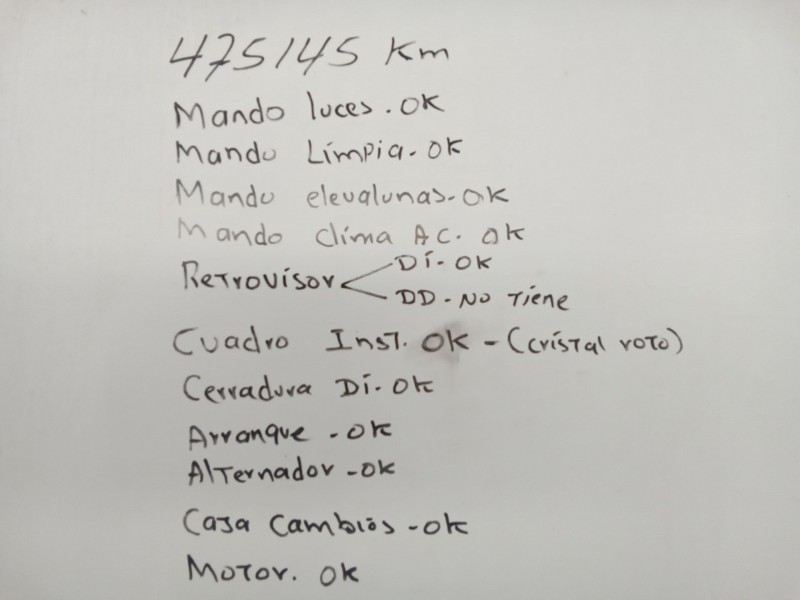 475145 Km
Mando luces. OK
Mando Limpia. OK
Mando elevalunas. OK
Mando clima AC. OK
Retrovisor DI. OK
DD - NO Tiene
Cuadro Inst. OK - (cristal roto)
Cerradura DI. OK
Arranque - OK
Alternador - OK
Caja Cambios - OK
Motor. OK